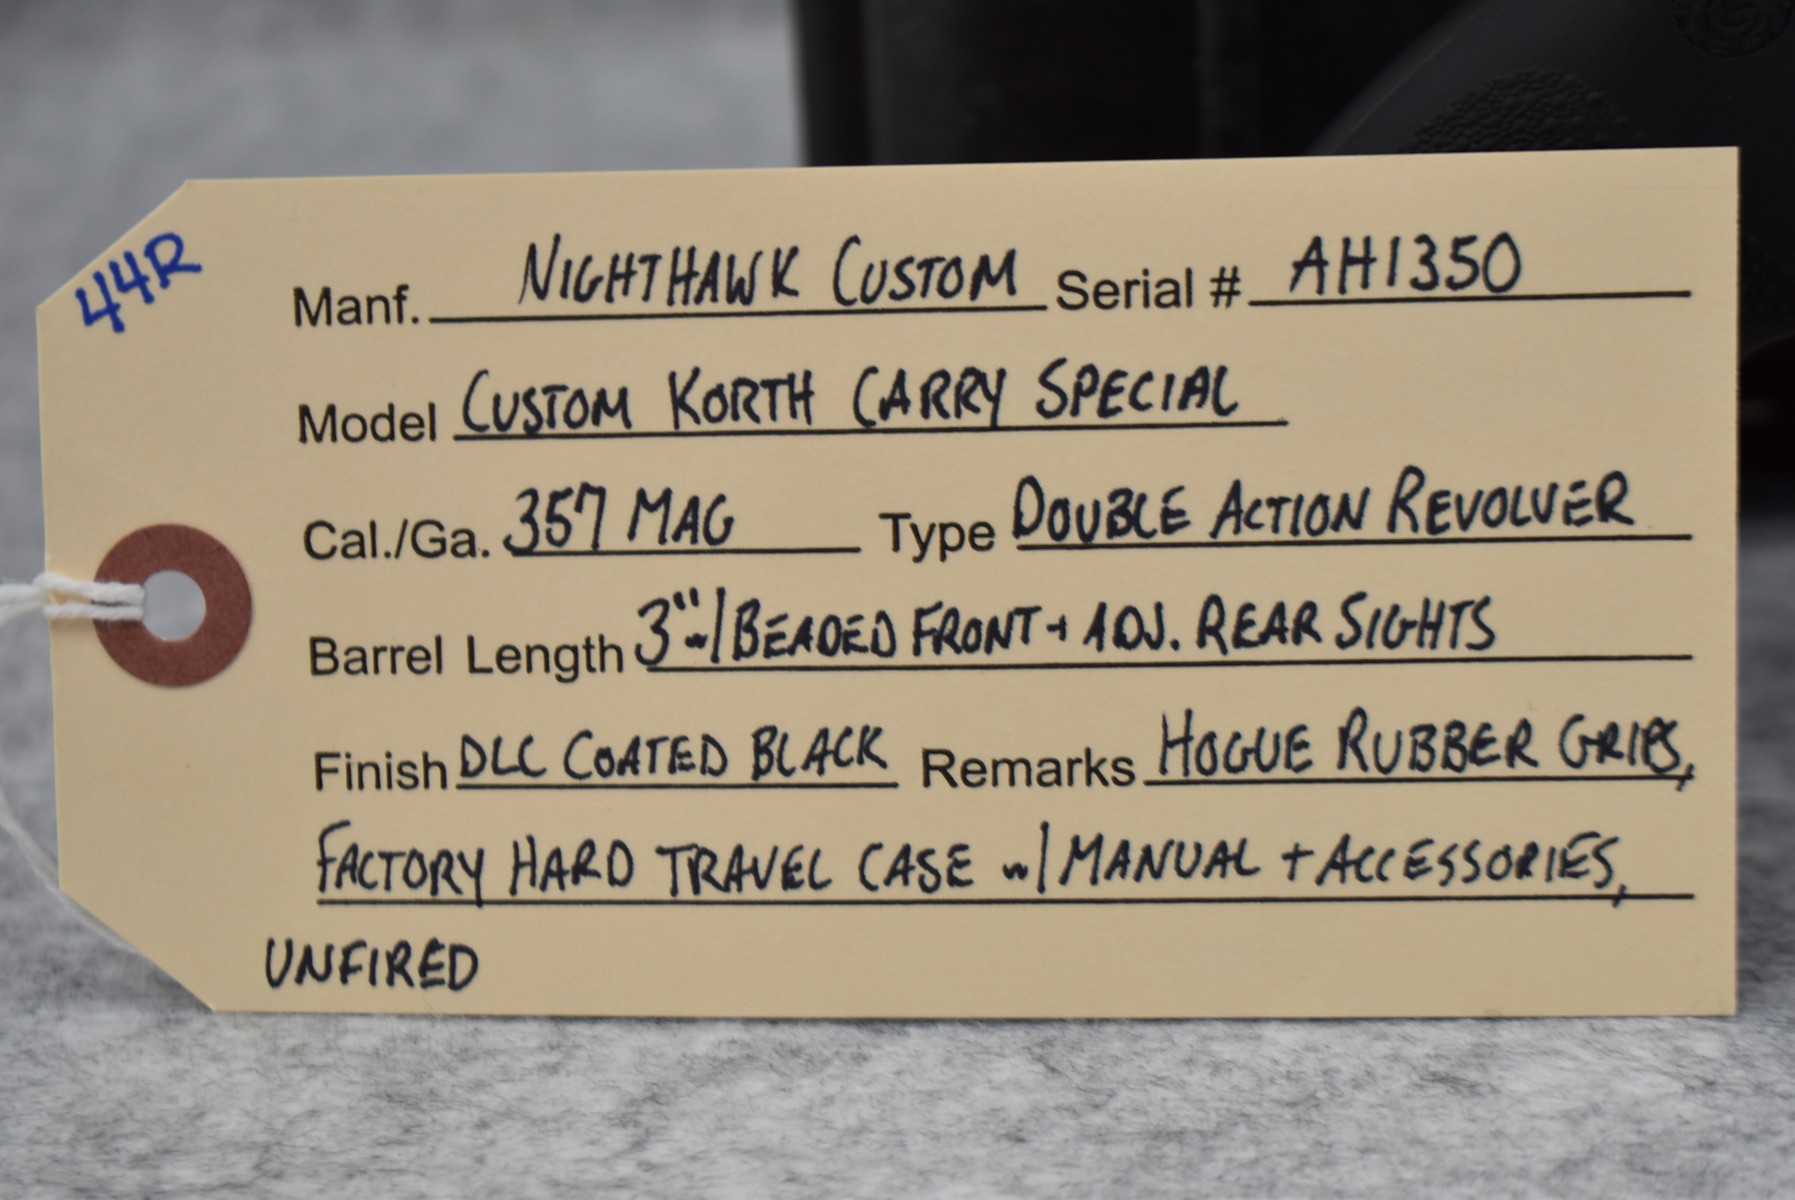 44R
Manf. NIGHTHAWK CUSTOM Serial # AH1350
Model CUSTOM KORTH CARRY SPECIAL
Cal./Ga. 357 MAG Type DOUBLE ACTION REVOLVER
Barrel Length 3" w/ BEADED FRONT + ADJ. REAR SIGHTS
Finish DLC COATED BLACK Remarks HOGUE RUBBER GRIPS,
FACTORY HARD TRAVEL CASE w/ MANUAL + ACCESSORIES,
UNFIRED